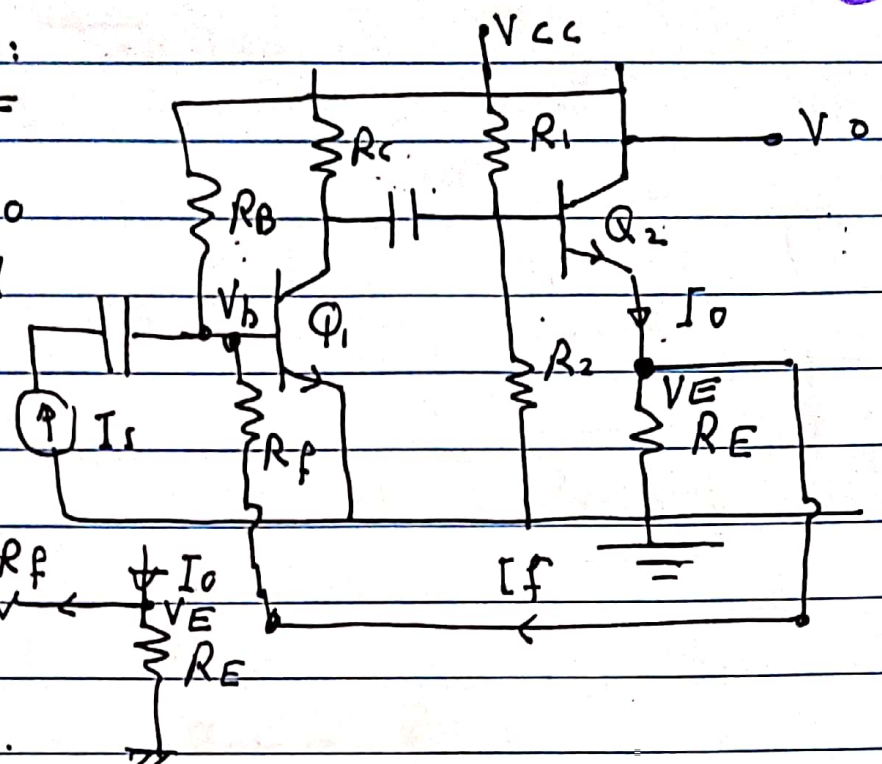 :
=
VCC
RC
R1
VO
RB
Q2
Vb
Q1
IO
R2
VE
RE
IS
Rf
If
Rf
IO
VE
RE